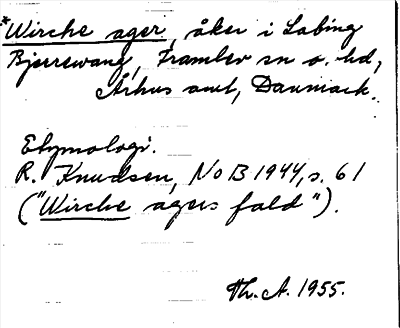 *Wirche ager, åker i Labing
Bjerrewang, Framlev sn o. hd,
Århus amt, Danmark.
Etymologi.
R. Knudsen, NoB 1944, s. 61
("Wirche agers fald").
Th. A. 1955.